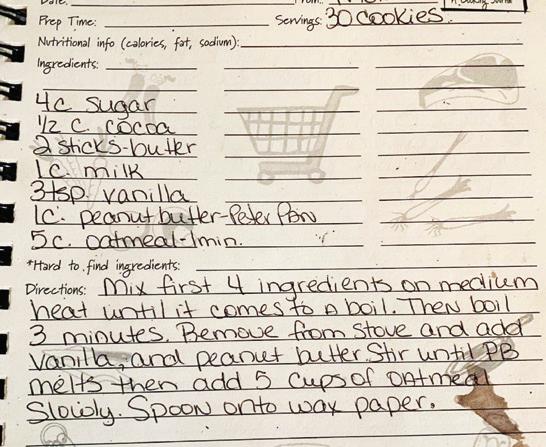 Prep Time: Servings: 30 cookies.
Nutritional info (calories, fat, sodium):
Ingredients:
4c sugar
1/2 c. cocoa
2 sticks-butter
1c. milk
3tsp. vanilla
1c. peanut butter-Peter Pan
5c. oatmeal-1min.
*Hard to find ingredients:
Directions: Mix first 4 ingredients on medium
heat until it comes to a boil. Then boil
3 minutes. Remove from stove and add
vanilla, and peanut butter. Stir until PB
melts then add 5 cups of oatmeal
slowly. Spoon onto wax paper.